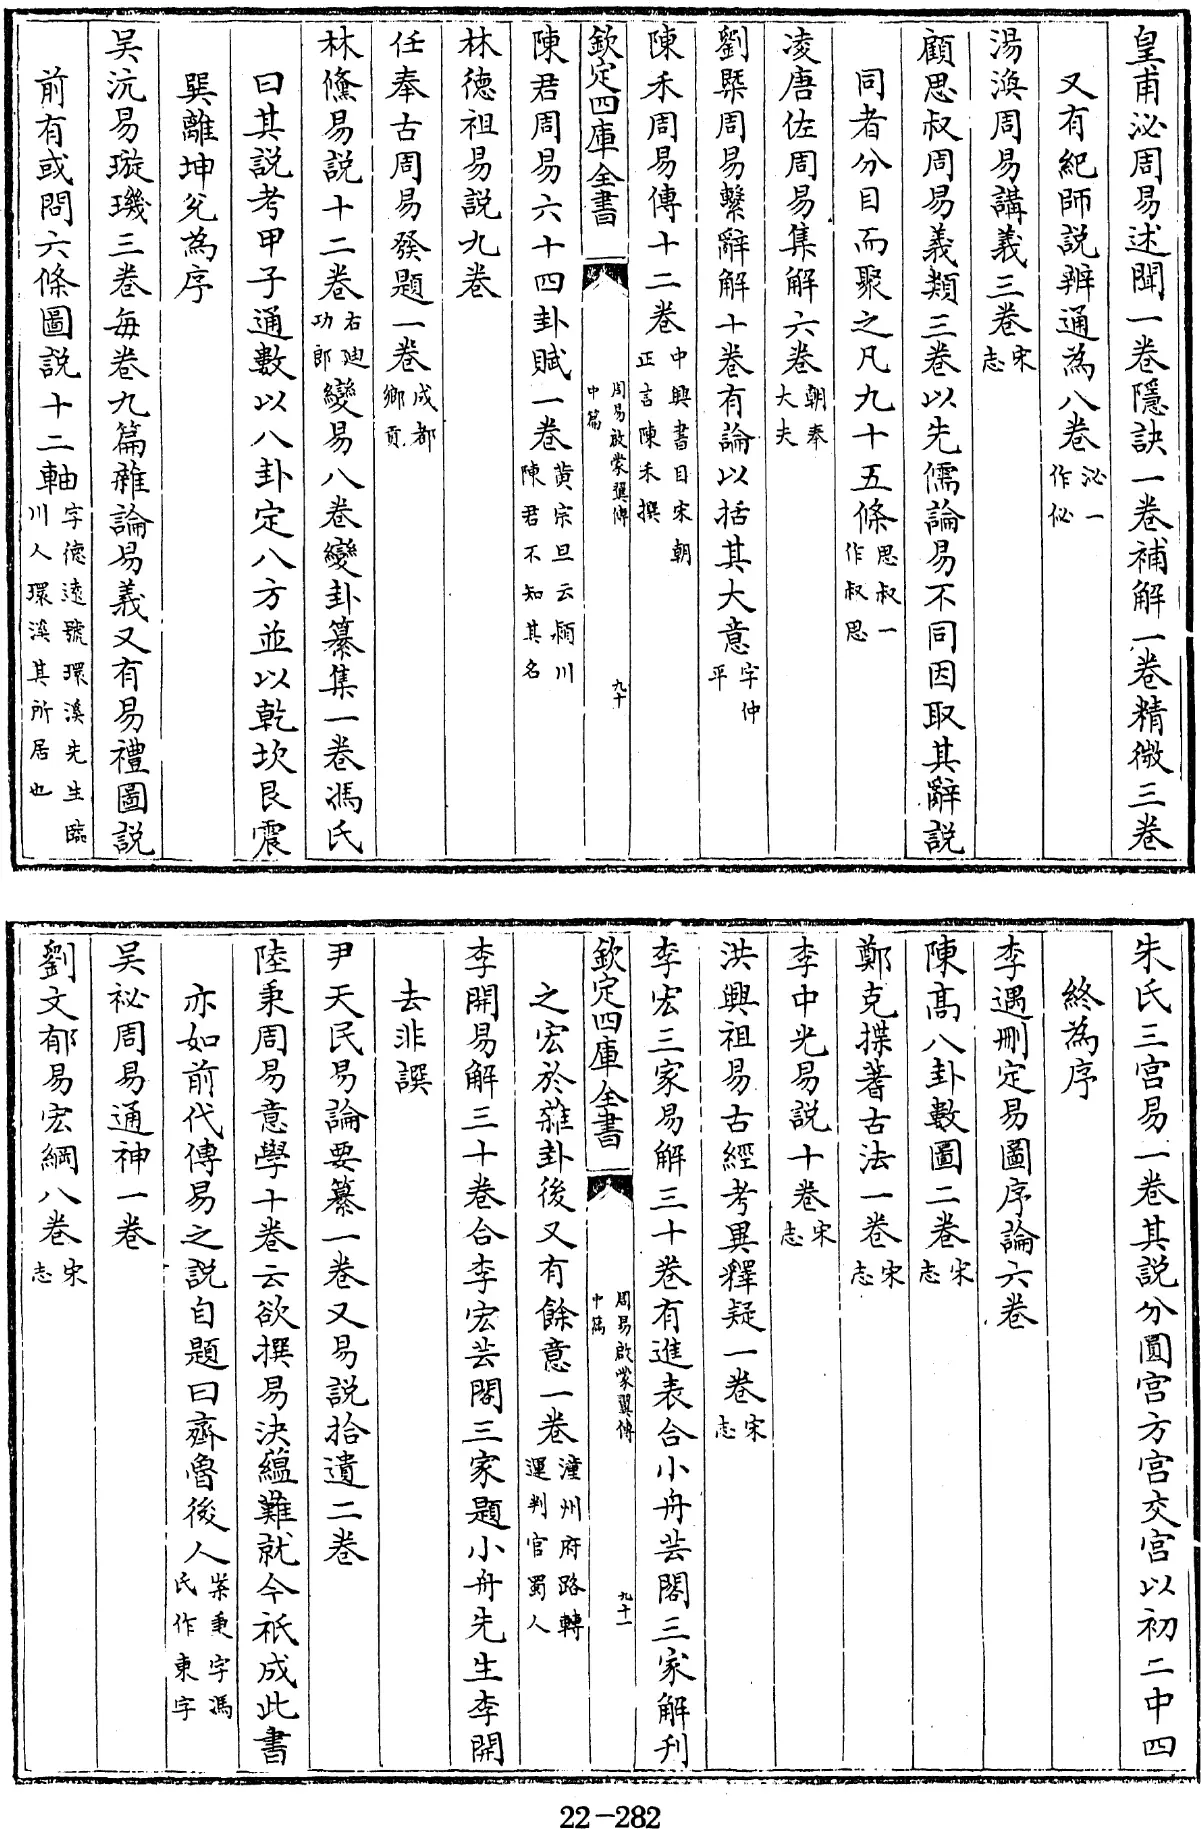 皇甫泌周易述聞一卷隱訣一卷補解一卷精微三卷
又有紀師說辨通為八卷泌一作佖
湯渙周易講義三卷宋志
顧思叔周易義類三卷以先儒論易不同因取其辭說
同者分目而聚之凡九十五條思叔一作叔思
凌唐佐周易集解六卷朝奉大夫
劉槩周易繫辭解十卷有論以括其大意字仲平
陳禾周易傳十二卷中興書目宋朝正言陳禾撰
欽定四庫全書 周易啟蒙翼傳中篇 九十
陳君周易六十四卦賦一卷黄宗旦云潁川陳君不知其名
林德祖易說九卷
任奉古周易發題一卷成都鄉貢
林儵易說十二卷右廸功郎變易八卷變卦纂集一卷馮氏
曰其說考甲子通數以八卦定八方並以乾坎艮震
巽離坤兌為序
吴沆易璇璣三卷每卷九篇雜論易義又有易禮圖說
前有或問六條圖說十二軸字德逺號環溪先生臨川人環溪其所居也
朱氏三宫易一卷其說分圓宫方宫交宫以初二中四
終為序
李遇刪定易圖序論六卷
陳高八卦數圖二卷宋志
鄭克揲蓍古法一卷宋志
李中光易說十卷宋志
洪興祖易古經考異釋疑一卷宋志
李宏三家易解三十卷有進表合小舟芸閣三家解刋
欽定四庫全書 周易啟蒙翼傳中篇 九十一
之宏於雜卦後又有餘意一卷潼州府路轉運判官蜀人
李開易解三十卷合李宏芸閣三家題小舟先生李開
去非譔
尹天民易論要纂一卷又易說拾遺二卷
陸秉周易意學十卷云欲撰易決蘊難就今祇成此書
亦如前代傳易之說自題曰齊魯後人柴秉字馮氏作東字
吴祕周易通神一卷
劉文郁易宏綱八卷宋志
22-282